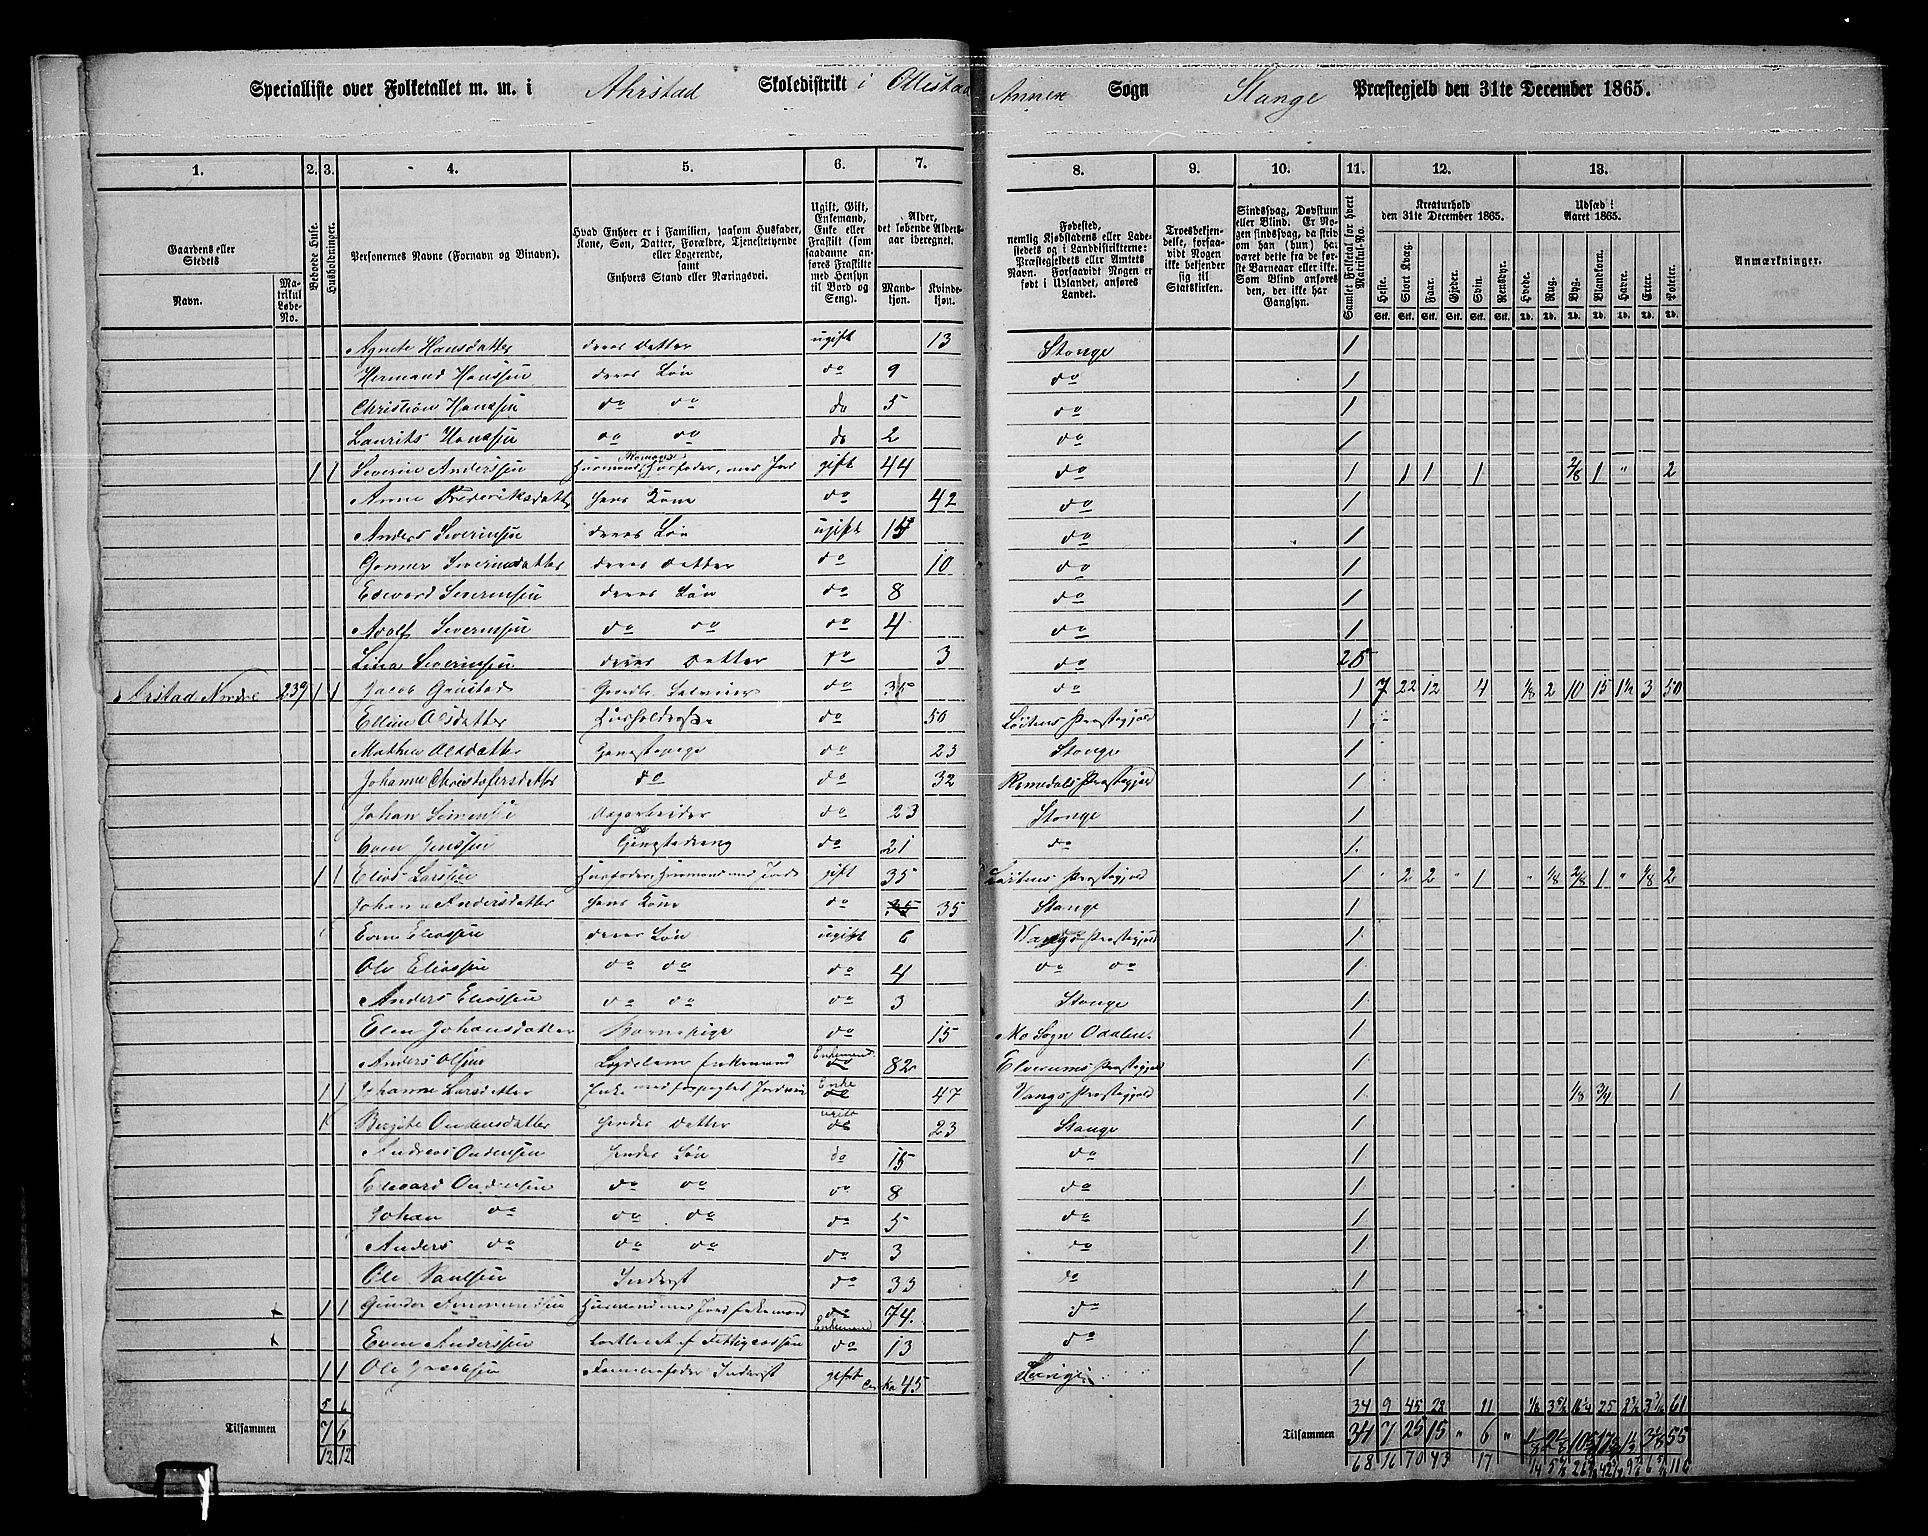 Specialliste over Folketallet m. m. i Ahrstad Skoledistrikt i Ottestad Annex Sogn Stange Præstegjeld den 31te December 1865.
1. 2. 3. 4. 5. 6. 7. 8. 9. 10. 11. 12. 13.
Gaardens eller Stedets
Navn.
Matrikul Løbe-No.
Beboede Huse.
Husholdninger.
Personernes Navne (Fornavn og Binavn).
Hvad Enhver er i Familien, saasom Husfader, Kone, Søn, Datter, Forældre, Tjenestetyende eller Logerende, samt Enhvers Stand eller Næringsvei.
Ugift, Gift, Enkemand, Enke eller Fraskilt (som saadanne anføres Fraskilte med Hensyn til Bord og Seng).
Alder, det løbende Alders-aar iberegnet.
Mandkjøn. Kvindekjøn.
Fødested, nemlig Kjøbstadens eller Ladestedets og i Landdistrikterne: Præstegjeldets eller Amtets Navn. Forsaavidt Nogen er født i Udlandet, anføres Landet.
Troesbekjendelse, forsaavidt Nogen ikke bekjender sig til Statskirken.
Sindssvag, Døvstum eller Blind. Er Nogen sindssvag, da skriv om han (hun) har været dette fra de første Barneaar eller ikke. Som Blind anføres den, der ikke har Gangsyn.
Samlet Folketal for hvert Matrikul-No.
Kreaturhold den 31te December 1865.
Heste. Stort Kvæg. Faar. Gjeder. Svin. Rensdyr.
Udsæd i Aaret 1865.
Hvede. Rug. Byg. Blandkorn. Havre. Erter. Poteter.
Anmærkninger.
Agnete Hansdatter deres Datter ugift 13 Stange 1
Hermand Hanssen deres Søn do 9 do 1
Christian Hanssen do do do 5 do 1
Laurits Hanssen do do do 2 do 1
1 1 Severin Anderssen gift 44 do 1 1 1 1 2/8 1 " 2
Anne Frederiksdatter hans Kone do 42 do 1
Anders Severinsen deres Søn ugift do 1
Gunner Severinsdatter deres Datter do 10 do 1
Edvard Severinsen deres Søn do 8 do 1
Adolf Severinsen do do do 4 do 1
Lina Severinsen deres Datter do 3 do 25
Arstad Nordre 239 1 1 Jacob Gaustad do 35 do 1 7 22 12 4 1/8 2 10 15 1½ 3 50
Ellen Olsdatter Husholderske do 50 Løitens Præstegjeld 1
Mathea Olsdatter Tjenestepige do 23 Stange 1
Johanne Christofersdatter do do 32 Romedals Præstegjeld 1
Johan Simensen Dagarbeider do 23 Stange 1
Even Jenssen Tjenestedreng do 21 do 1
1 1 Elias Larssen Husfader, Husmand med Jord gift 35 Løitens Præstegjeld 1 " 2 2 " 1 " 1/8 2/8 1 " 1/8 2
Johanne Andersdatter hans Kone do 35 35 Stange 1
Even Eliassen deres Søn ugift 6 Vangs Præstegjeld 1
Ole Eliassen do do do 4 do do 1
Anders Eliassen do do do 3 Stange 1
Elen Johansdatter Barnepige do 15 Mo Sogn Odalen 1
Anders Olsen Enkemand 82 Elverums Præstegjeld 1
1 1 Johanne Larsdatter Enke med forpagtet Jordvei Enke 47 Vangs Præstegjeld 1 1/8 3/4 1
Birgitte Andersdatter hendes Datter ugift 23 Stange 1
Andreas Andersen hendes Søn do 15 do 1
Edvard Andersen do do do 8 do 1
Johan do do do do 5 do 1
Anders do do do do 3 do 1
Ole Paulsen Inderst do 33 do 1
1 1 Gunder Amundsen Husmand med Jord Enkemand 74 do 1
Enkemand
Even Anderssen do 13 do 1
1 1 Ole Jacobsen Inderst gift 45 Stange 1
5 6 34 9 45 28 11 25 61
Tilsammen 7 6 Tilsammen 34 7 25 15 " 6 " 55
12 12 68 16 70 43 17 116